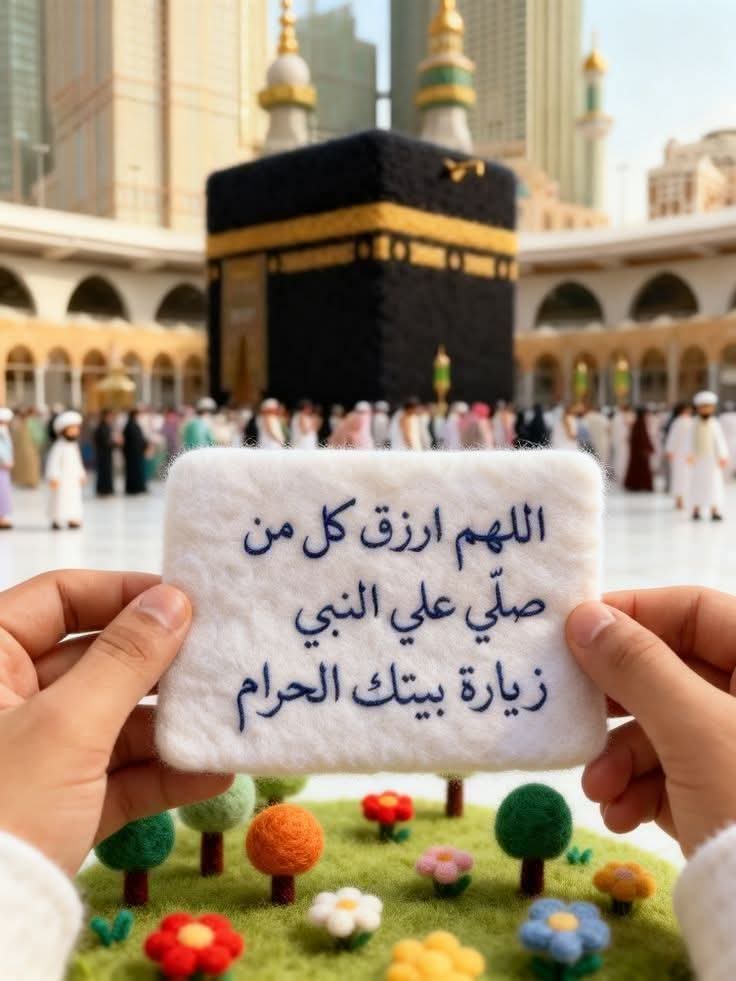 اللهم ارزق كل من
صلّي علي النبي
زيارة بيتك الحرام